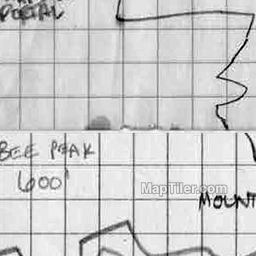 PORTAL
BEE PEAK
600'
MapTiler.com
MOUNT